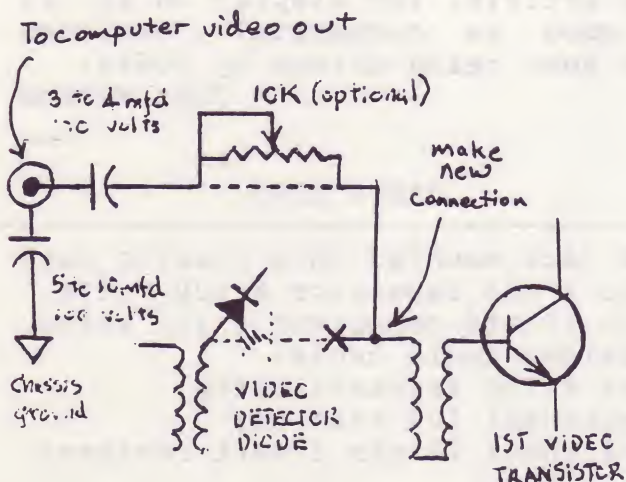 To computer video out
3 to 4 mfd
100 volts
10K (optional)
make
new
connection
5 to 10 mfd
100 volts
Chassis
ground
VIDEO
DETECTOR
DIODE
1ST VIDEO
TRANSISTOR